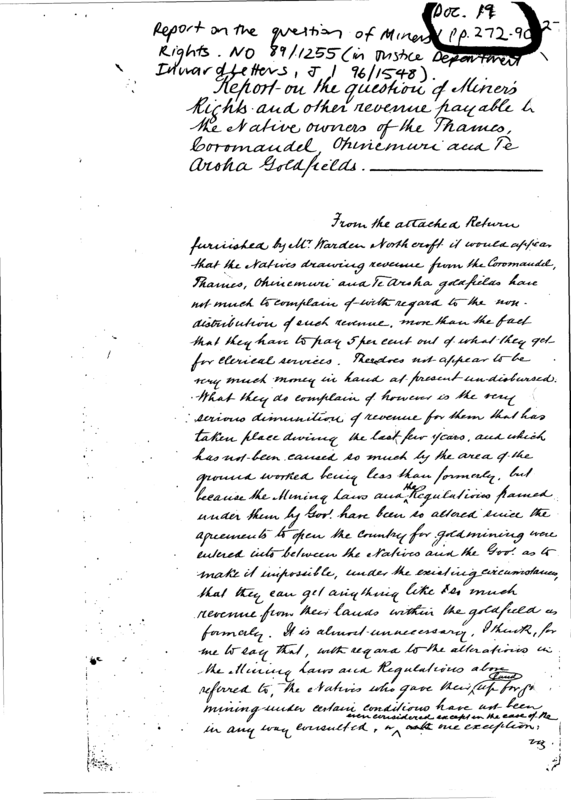 Doc. 19
pp. 272-90
Report on the question of Miners'
Rights. NO 89/1255 (in Justice Department
Inward Letters, J 1 96/1548).
Report on the question of Miner's
Rights and other revenue payable to
the Native owners of the Thames,
Coromandel, Ohinemuri and Te
Aroha Goldfields.
From the attached Return
furnished by Mr. Warden Northcroft it would appear
that the Natives drawing revenue from the Coromandel,
Thames, Ohinemuri and Te Aroha goldfields have
not much to complain of with regard to the non-
distribution of such revenue, more than the fact
that they have to pay 5 per cent out of what they get
for clerical services. There does not appear to be
very much money in hand at present undisbursed.
What they do complain of however is the very
serious dimunition of revenue for them that has
taken place during the last few years, and which
has not been caused so much by the area of the
ground worked being less than formerly, but
because the Mining Laws and the Regulations framed
under them by Govt. have been so altered since the
agreements to open the country for goldmining were
entered into between the Natives and the Govt. as to
make it impossible, under the existing circumstances,
that they can get anything like so much
revenue from their lands within the goldfield as
formerly. It is almost unnecessary, I think, for
me to say that, with regard to the alterations in
the Mining Laws and Regulations above
referred to, the Natives who gave their land up for
mining under certain conditions have not been
in any way consulted, or even considered except in the case of the one exception.
viz